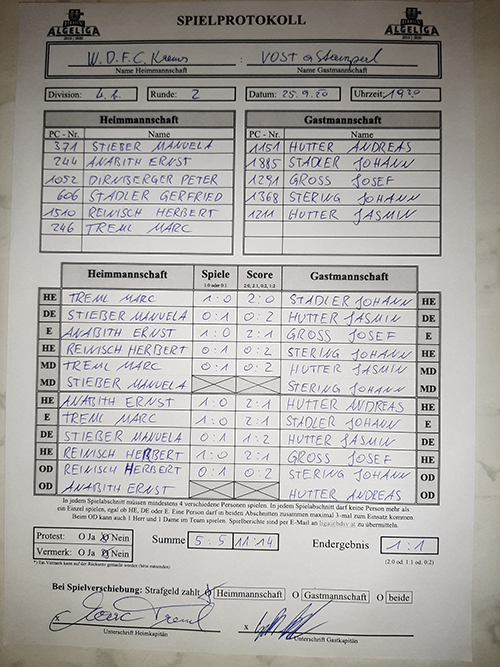 SPIELPROTOKOLL
ALGELIGA ALGELIGA
W.D.F.C. Krems : VOST
Name Heimmannschaft Name Gastmannschaft
Division: Runde: 2 Datum: 25.9.20 Uhrzeit: 19
Heimmannschaft Gastmannschaft
PC - Nr. Name PC - Nr. Name
371 STIEBER MANUELA 1151 HUTTER ANDREAS
244 ANABITH ERNST 1885 STADLER JOHANN
1052 DIRNBERGER PETER 1291 GROSS JOSEF
606 STADLER GERFRIED 1368 STERING JOHANN
1510 REINISCH HERBERT 1211 HUTTER JASMIN
246 TREML MARC
Heimmannschaft Spiele Score Gastmannschaft
1:0 oder 0:1 2:0, 2:1, 0:2, 1:2
HE TREML MARC 1:0 2:0 STADLER JOHANN HE
DE STIEBER MANUELA 0:1 0:2 HUTTER JASMIN DE
E ANABITH ERNST 1:0 2:1 GROSS JOSEF E
HE REINISCH HERBERT 0:1 0:2 STERING JOHANN HE
MD TREML MARC 0:1 0:2 HUTTER JASMIN MD
MD STIEBER MANUELA STERING JOHANN MD
HE ANABITH ERNST 1:0 2:1 HUTTER ANDREAS HE
E TREML MARC 1:0 2:1 STADLER JOHANN E
DE STIEBER MANUELA 0:1 1:2 HUTTER JASMIN DE
HE REINISCH HERBERT 1:0 2:1 GROSS JOSEF HE
OD REINISCH HERBERT 0:1 0:2 STERING JOHANN OD
OD ANABITH ERNST HUTTER ANDREAS OD
In jedem Spielabschnitt müssen mindestens 4 verschiedene Personen spielen. In jedem Spielabschnitt darf keine Person mehr als
ein Einzel spielen, egal ob HE, DE oder E. Eine Person darf in beiden Abschnitten zusammen maximal 3-mal zum Einsatz kommen.
Beim OD kann auch 1 Herr und 1 Dame im Team spielen. Spielberichte sind per E-Mail an zu übermitteln.
Protest: O Ja O Nein Summe 5:5 11:14 Endergebnis 1:1
Vermerk: O Ja O Nein (2:0 od. 1:1 od. 0:2)
*) Ein Vermerk kann auf der Rückseite gemacht werden (bitte umseiten)
Bei Spielverschiebung: Strafgeld zahlt O Heimmannschaft O Gastmannschaft O beide
x x
Unterschrift Heimkapitän Unterschrift Gastkapitän